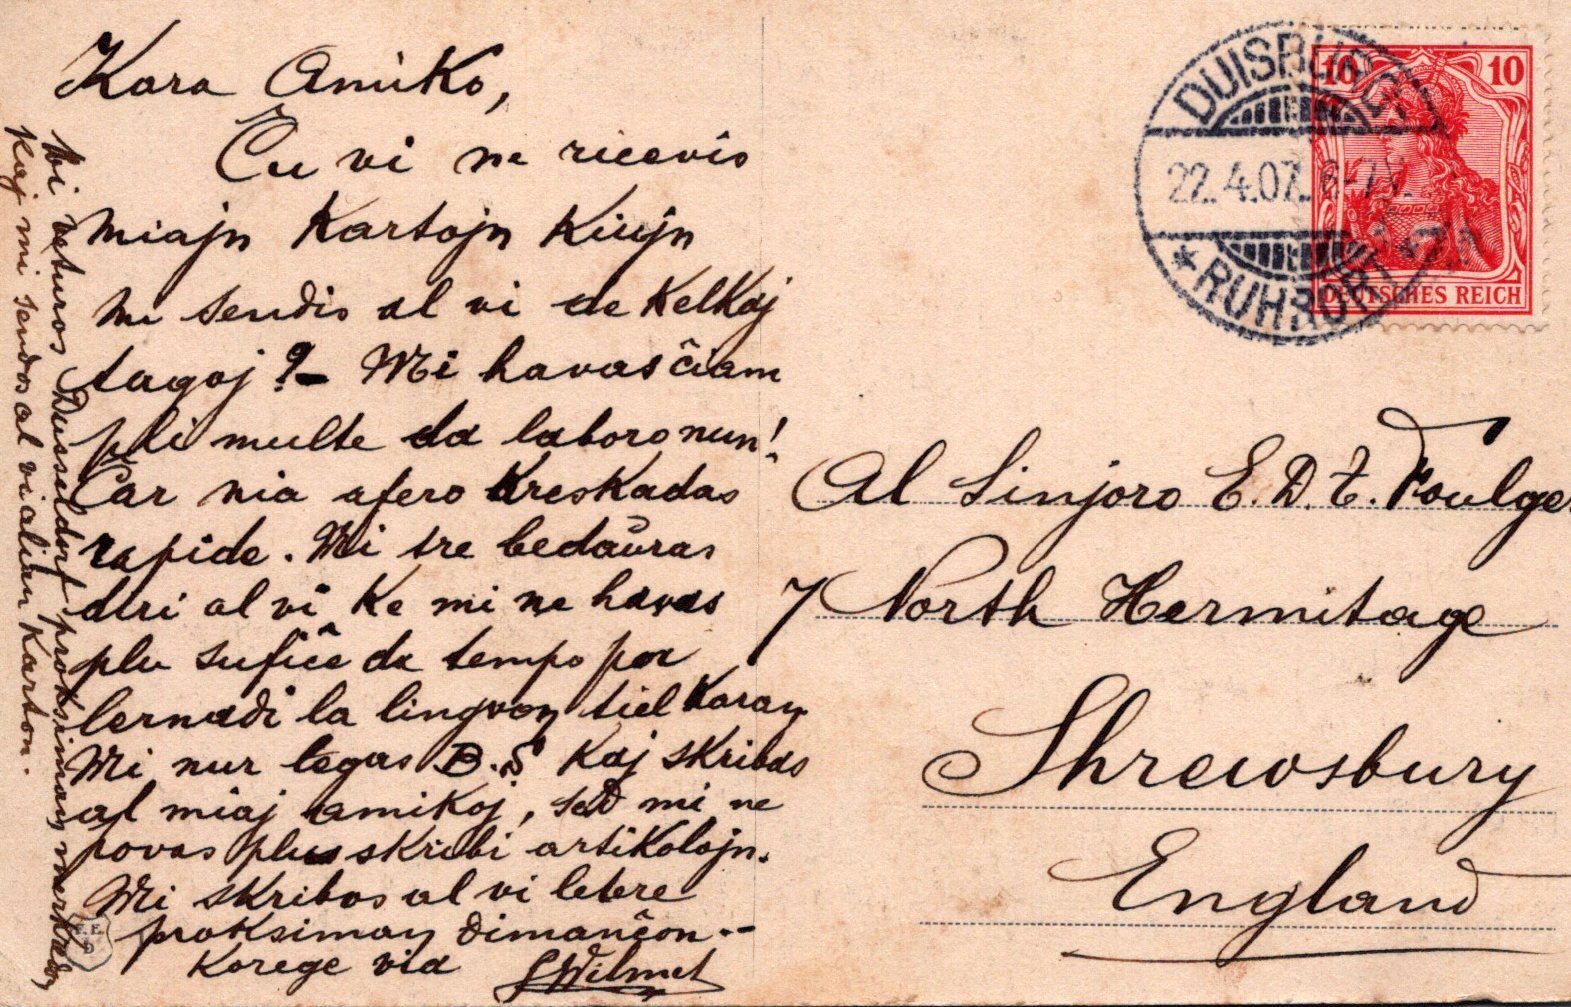 Kara Amiko,
Ĉu vi ne ricevis
miajn Kartojn Kiujn
mi sendis al vi de Kelkaj
tagoj?— Mi havas ĉiam
pli multe da laboro nun!
Ĉar nia afero Kreskadas
rapide. Mi tre bedaŭras
diri al vi Ke mi ne havas
plu sufiĉe da tempo por
lernadi la lingvon tiel Karan
Mi nur legas B.S Kaj skribas
al miaj amikoj, sed mi ne
povas plus skribi artikolojn.
Mi skribos al vi letere
proksiman dimanĉon --
Korege via
Wilmet
veturos Dusseldorf proksiman merkredon
Kaj mi sendos al vi alian Karton.
DUISBURG
22.4.07. 6-7N.
* RUHRORT *
10 10
DEUTSCHES REICH
Al Sinjoro E. D. T. Foulger
7 North Hermitage
Shrewsbury
England
F.E.
D